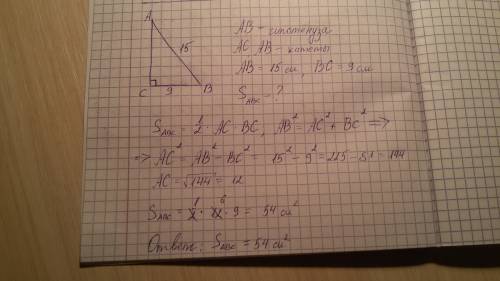 A
15
C 9 B
AB - гипотенуза
AC, AB - катеты
AB = 15 см, BC = 9 см
S_ABC - ?
S_ABC = 1/2 · AC · BC, AB² = AC² + BC² =>
=> AC² = AB² - BC² = 15² - 9² = 225 - 81 = 144
AC = √144 = 12
S_ABC = 1/2 · 12 6 · 9 = 54 см²
Ответ: S_ABC = 54 см²